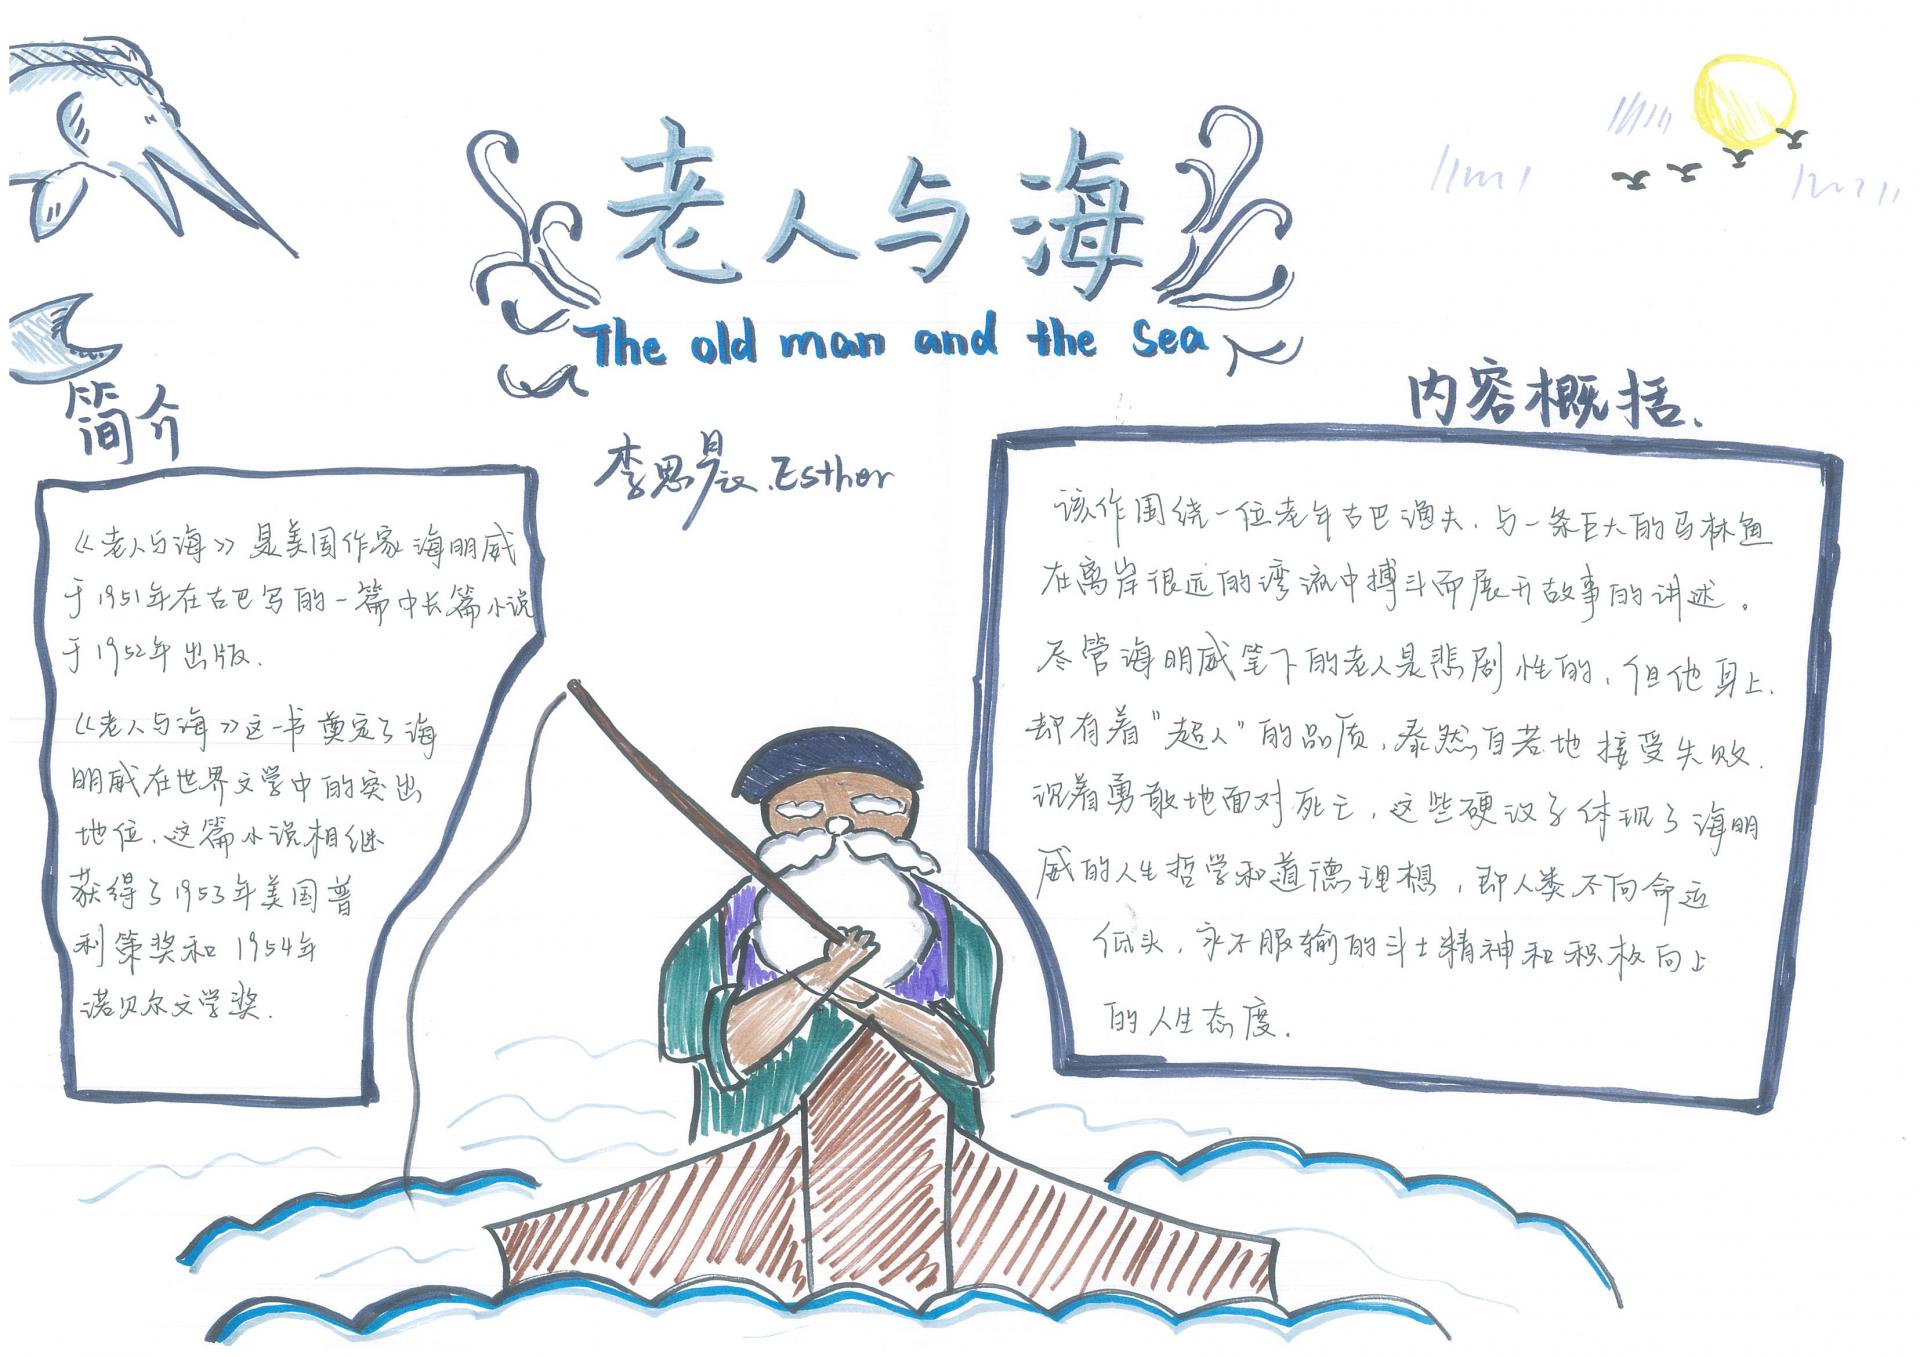 老人与海
The old man and the sea
李思晨.Esther
简介
《老人与海》是美国作家海明威
于1951年在古巴写的一篇中长篇小说
于1952年出版.
《老人与海》这一书奠定了海
明威在世界文学中的突出
地位.这篇小说相继
获得了1953年美国普
利策奖和1954年
诺贝尔文学奖.
内容概括.
该作围绕一位老年古巴渔夫,与一条巨大的马林鱼
在离岸很远的湾流中搏斗而展开故事的讲述。
尽管海明威笔下的老人是悲剧性的,但他身上.
却有着"超人"的品质,泰然自若地接受失败.
沉着勇敢地面对死亡,这些硬汉子体现了海明
威的人生哲学和道德理想,即人类不向命运
低头,永不服输的斗士精神和积极向上
的人生态度.